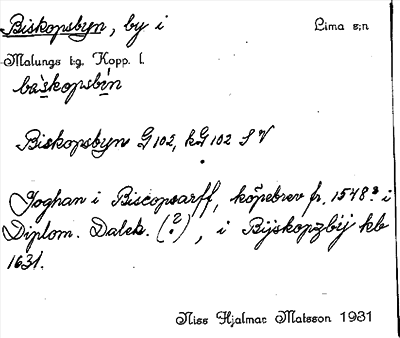 Biskopsbyn, by i Lima s:n
Malungs t:g. Kopp. l.
bàskopsbìn
Biskopsbyn G 102, kG 102 S V
Joghan i Biscopsarff, köpebrev fr. 1548? i
Diplom. Dalek. (?), i Bijskopzbij kb
1631.
Niss Hjalmar Matsson 1931